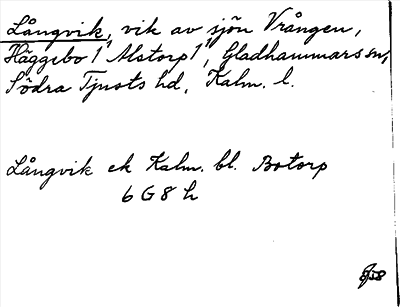 Långvik, vik av sjön Vrången,
Häggebo 1¹ Alstorp 1¹, Gladhammars sn,
Södra Tjusts hd, Kalm. l.
Långvik ek Kalm. bl. Botorp
6 G 8 h